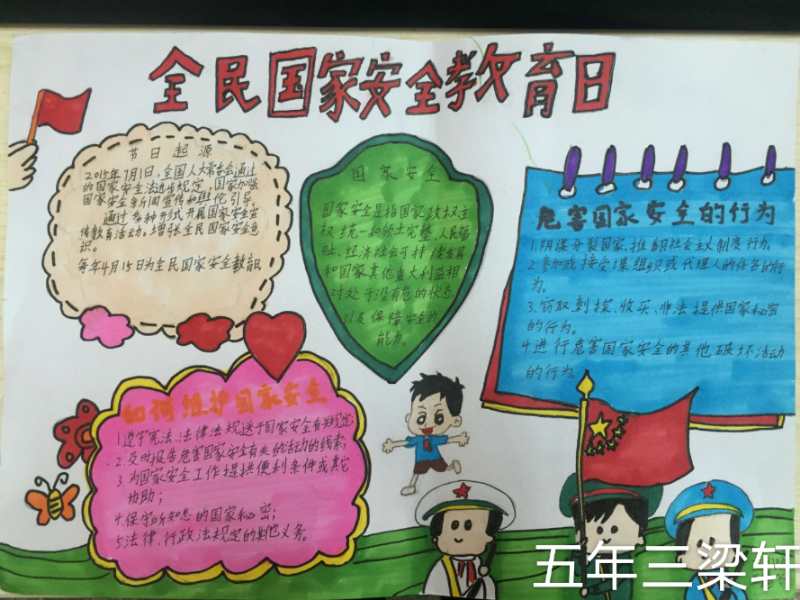 全民国家安全教育日
节日起源
2015年7月1日,全国人大常委会通过
的国家安全法
国家加强
国家安全新闻宣传和
引导,
通过多种形式开展国家安全宣
传教育活动。增强全民国家安全意
识。
每年4月15日为全民国家安全教育日
国家安全
国家安全是指国家政权主
权统一和领土完整、人民福
祉、经济社会可持续发展
和国家其他重大利益相
对处于没有危的状态
以及保障安全的
能力。
危害国家安全的行为
1.阴谋分裂国家,推翻社会主义制度行为
2.参加或接受
组织或代理人的任务的行
为。
3.窃取刺探、收买、非法提供国家秘密
的行为。
4.进行危害国家安全的其他破坏活动
的行为。
如何维护国家安全
1.遵守宪法、法律法规
于国家安全有
规定
2.及时报告危害国家安全
活动的线索;
3.为国家安全工作提供便利条件或其它
协助;
4.保守所知悉的国家秘密;
5法律、行政法规定的其他义务。
五年三梁轩